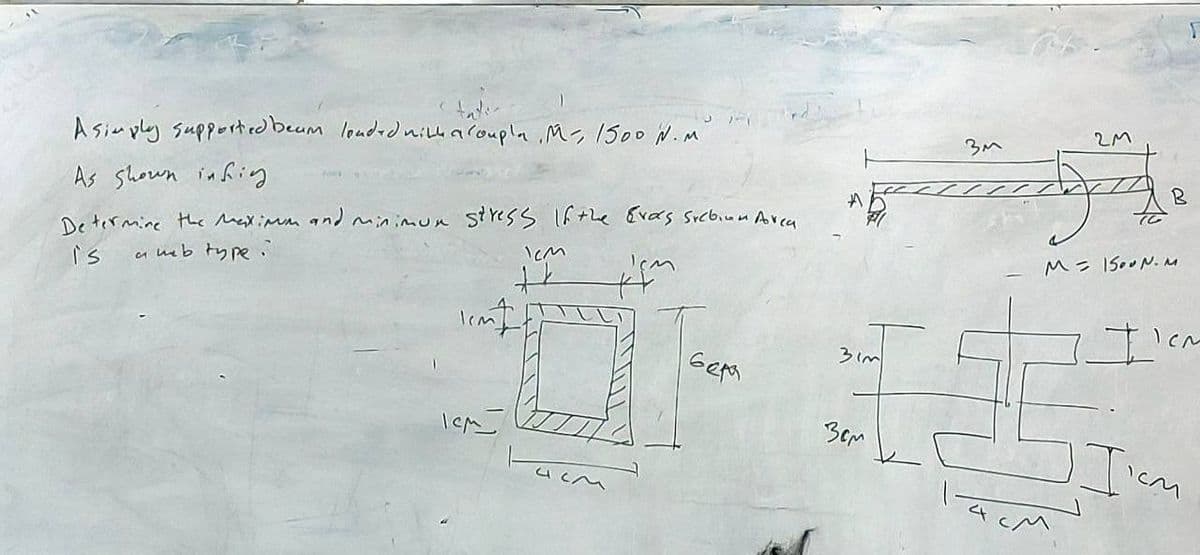 A simply supported beam loaded with a couple, M = 1500 N.M
As shown in fig
Determine the maximum and minimun stress If the
is a web type:
3M
2M
A
B
M = 1500 N.M
1cm
1cm
1cm
6cm
1cm
4cm
3cm
1cm
3cm
1cm
4cm